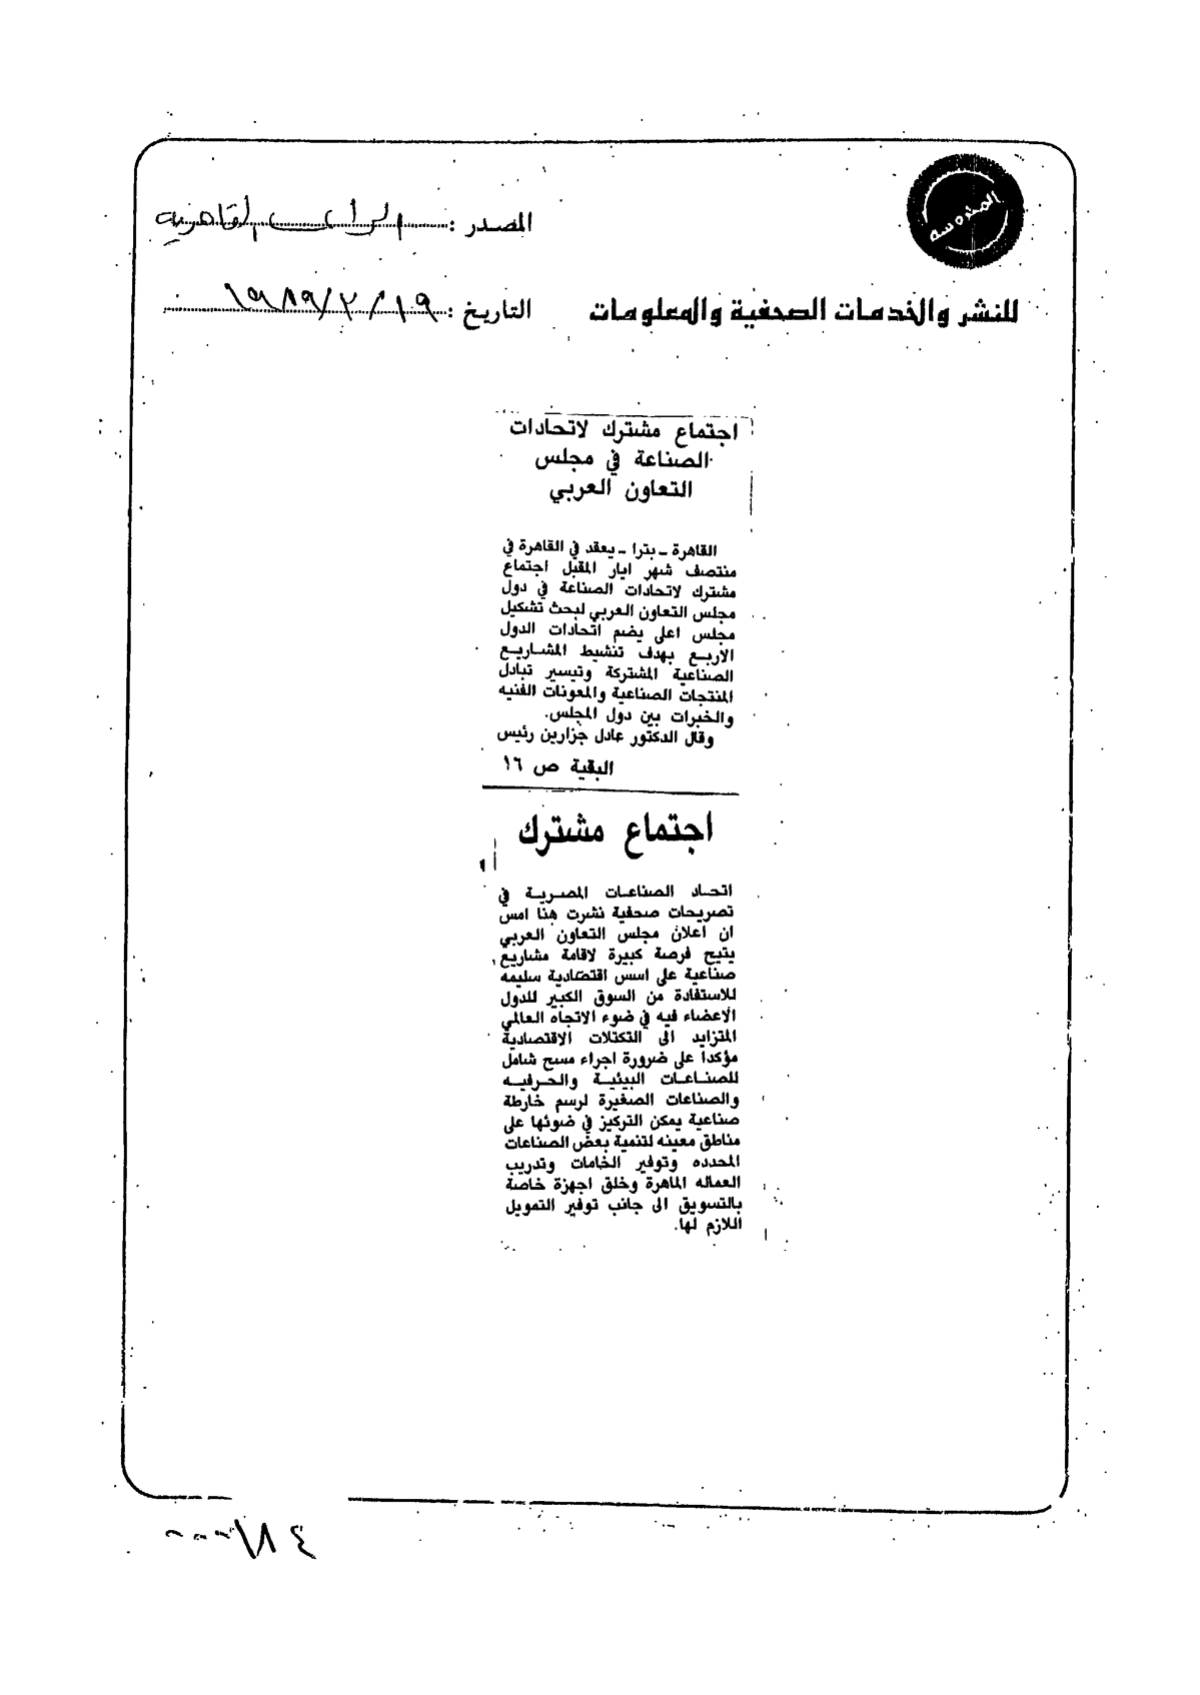 المحروسة
المصدر : القاهرية
للنشر والخدمات الصحفية والمعلومات
التاريخ : ١٩ / ٢ / ١٩٨٩
اجتماع مشترك لاتحادات
الصناعة في مجلس
التعاون العربي
القاهرة ـ بترا ـ يعقد في القاهرة في
منتصف شهر ايار المقبل اجتماع
مشترك لاتحادات الصناعة في دول
مجلس التعاون العربي لبحث تشكيل
مجلس اعلى يضم اتحادات الدول
الاربع بهدف تنشيط المشاريع
الصناعية المشتركة وتيسير تبادل
المنتجات الصناعية والمعونات الفنيه
والخبرات بين دول المجلس.
وقال الدكتور عادل جزارين رئيس
البقية ص ١٦
اجتماع مشترك
اتحاد الصناعات المصرية في
تصريحات صحفية نشرت هنا امس
ان اعلان مجلس التعاون العربي
يتيح فرصة كبيرة لاقامة مشاريع
صناعية على اسس اقتصادية سليمه
للاستفادة من السوق الكبير للدول
الاعضاء فيه في ضوء الاتجاه العالمي
المتزايد الى التكتلات الاقتصادية
مؤكدا على ضرورة اجراء مسح شامل
للصناعات البيئية والحرفيه
والصناعات الصغيرة لرسم خارطة
صناعية يمكن التركيز في ضوئها على
مناطق معينه لتنمية بعض الصناعات
المحدده وتوفير الخامات وتدريب
العماله الماهرة وخلق اجهزة خاصة
بالتسويق الى جانب توفير التمويل
اللازم لها.